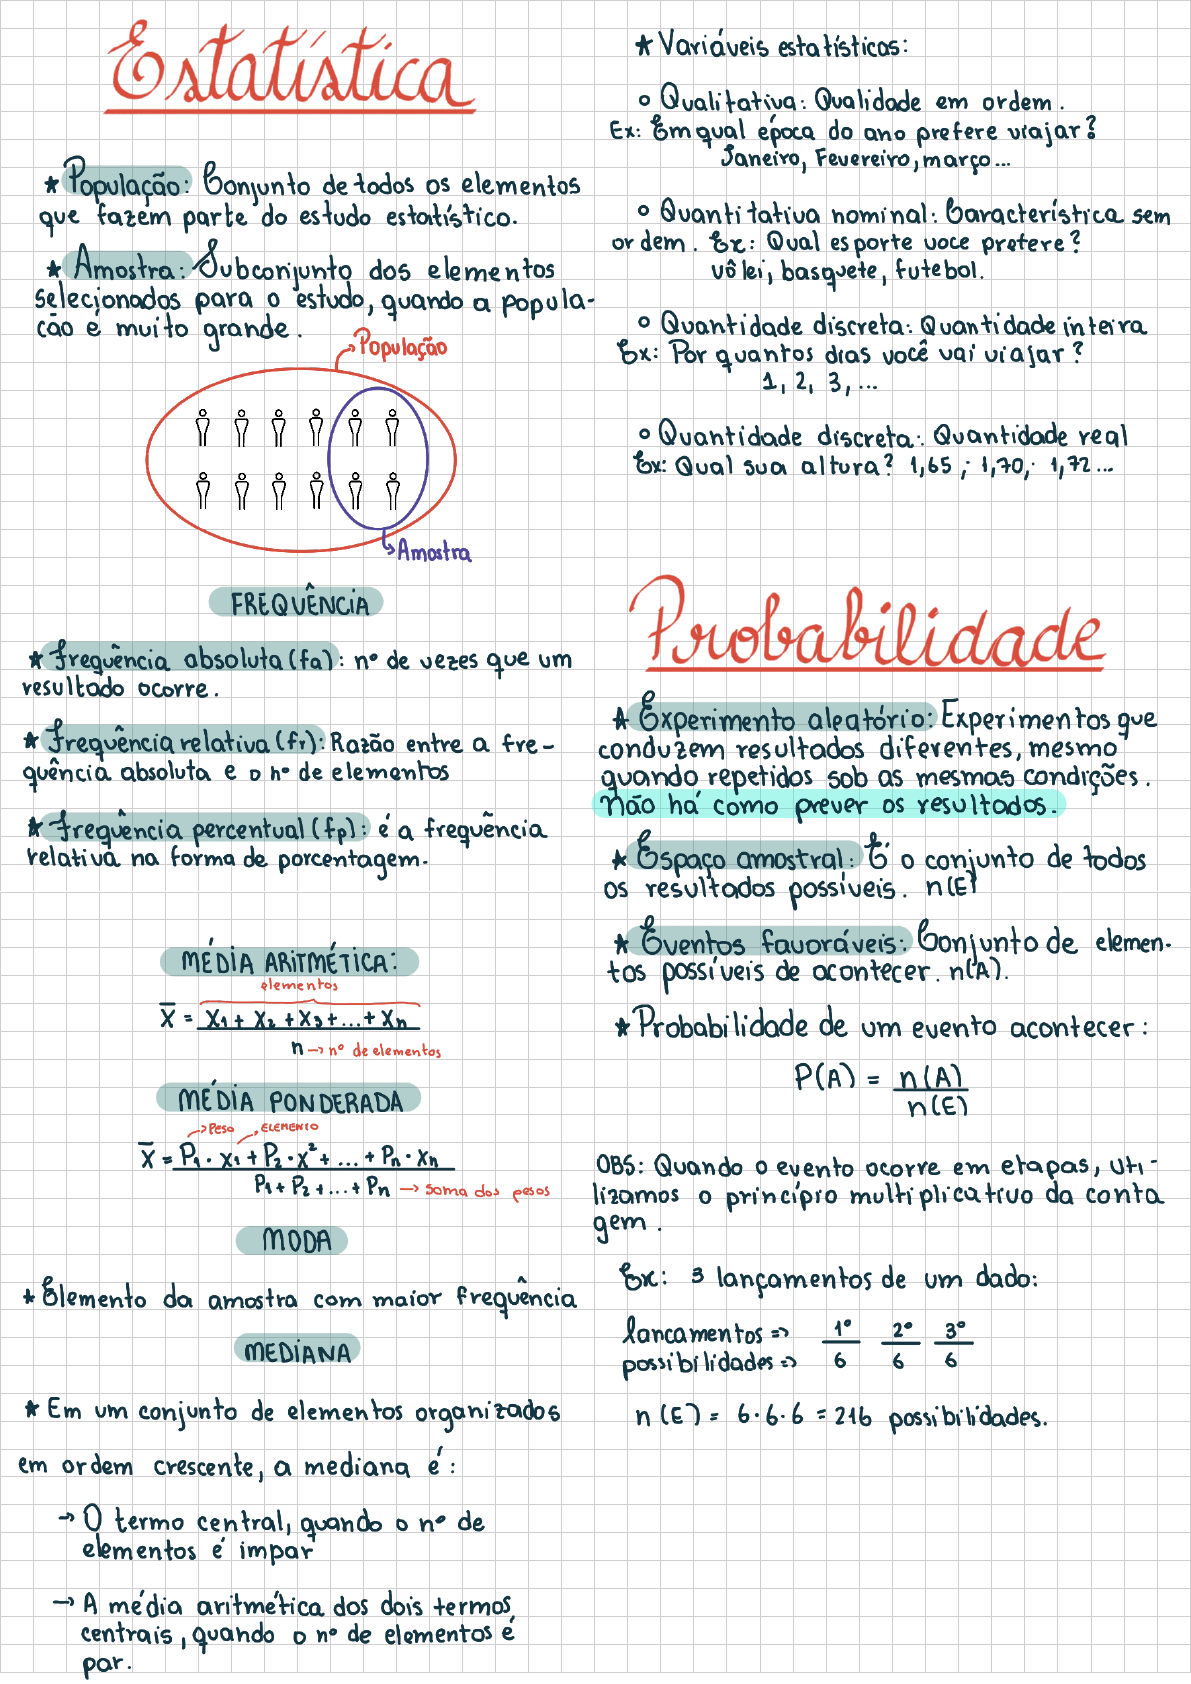 Estatística
★ População: Conjunto de todos os elementos
que fazem parte do estudo estatístico.
★ Amostra: Subconjunto dos elementos
selecionados para o estudo, quando a popula-
ção é muito grande.
→ População
→ Amostra
FREQUÊNCIA
★ Frequência absoluta (fa): nº de vezes que um
resultado ocorre.
★ Frequência relativa (fr): Razão entre a fre-
quência absoluta e o nº de elementos
★ Frequência percentual (fp): é a frequência
relativa na forma de porcentagem.
MÉDIA ARITMÉTICA:
elementos
x̅ = x₁ + x₂ + x₃ + ... + xₙ
n → nº de elementos
MÉDIA PONDERADA
→ Peso → ELEMENTO
x̅ = P₁ · x₁ + P₂ · x² + ... + Pₙ · xₙ
P₁ + P₂ + ... + Pₙ → soma dos pesos
MODA
★ Elemento da amostra com maior frequência
MEDIANA
★ Em um conjunto de elementos organizados
em ordem crescente, a mediana é:
→ O termo central, quando o nº de
elementos é impar
→ A média aritmética dos dois termos
centrais, quando o nº de elementos é
par.
★ Variáveis estatísticas:
o Qualitativa: Qualidade em ordem.
Ex: Em qual época do ano prefere viajar?
Janeiro, Fevereiro, março...
o Quantitativa nominal: Característica sem
ordem. Ex: Qual esporte voce prefere?
vôlei, basquete, futebol.
o Quantidade discreta: Quantidade inteira
Ex: Por quantos dias você vai viajar?
1, 2, 3, ...
o Quantidade discreta: Quantidade real
Ex: Qual sua altura? 1,65 ; 1,70; 1,72...
Probabilidade
★ Experimento aleatório: Experimentos que
conduzem resultados diferentes, mesmo
quando repetidos sob as mesmas condições.
Não há como prever os resultados.
★ Espaço amostral: É o conjunto de todos
os resultados possíveis. n(E)
★ Eventos favoráveis: Conjunto de elemen-
tos possíveis de acontecer. n(A).
★ Probabilidade de um evento acontecer:
P(A) = n(A)
n(E)
OBS: Quando o evento ocorre em etapas, uti-
lizamos o princípio multiplicativo da conta
gem.
Ex: 3 lançamentos de um dado:
lancamentos => 1º 2º 3º
possibilidades => 6 6 6
n(E) = 6·6·6 = 216 possibilidades.